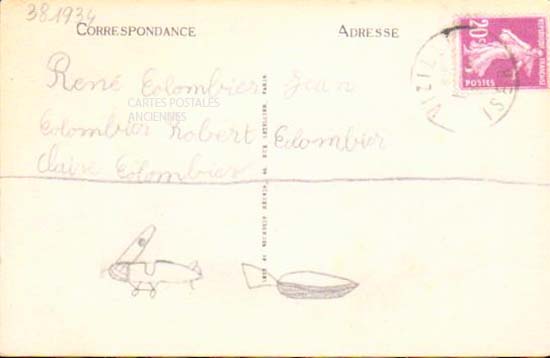 381934
CORRESPONDANCE
ADRESSE
20c
POSTES
VIZIL
ISÈRE
René Colombier Jean
CARTES POSTALES
ANCIENNES
Colombier Robert Colombier
Claire Colombier